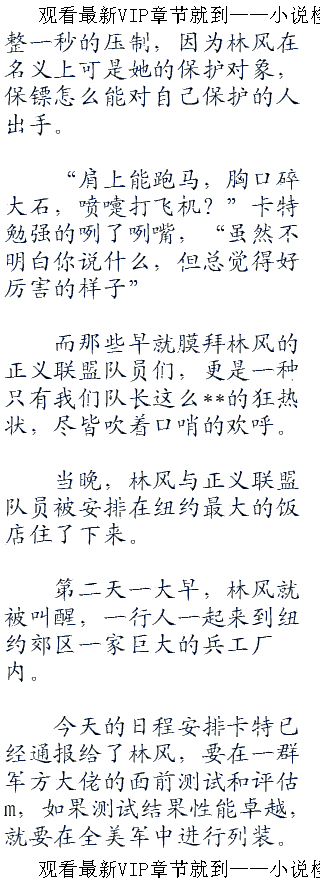 观看最新VIP章节就到——小说检
整一秒的压制，因为林风在
名义上可是她的保护对象，
保镖怎么能对自己保护的人
出手。
“肩上能跑马，胸口碎
大石，喷嚏打飞机？”卡特
勉强的咧了咧嘴，“虽然不
明白你说什么，但总觉得好
厉害的样子”
而那些早就膜拜林风的
正义联盟队员们，更是一种
只有我们队长这么**的狂热
状，尽皆吹着口哨的欢呼。
当晚，林风与正义联盟
队员被安排在纽约最大的饭
店住了下来。
第二天一大早，林风就
被叫醒，一行人一起来到纽
约郊区一家巨大的兵工厂
内。
今天的日程安排卡特已
经通报给了林风，要在一群
军方大佬的面前测试和评估
m，如果测试结果性能卓越，
就要在全美军中进行列装。
观看最新VIP章节就到——小说检